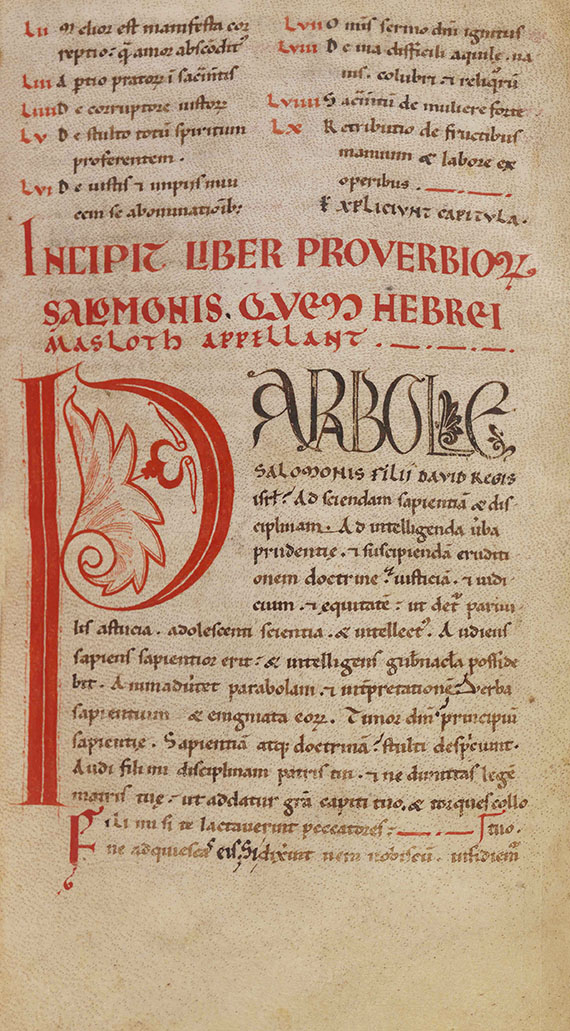 LII Melior est manifesta cor
reptio: q̄ amor abscondit᷒
LIII Apertio pratorꝝ ī sacīntis
LIIII De corruptore uistorꝝ
LV De stulto totum spiritum
proferentem .
LVI De iustis ⁊ impiis inui
cem se abominatiōib;
LVII Omīs sermo dn̄i ignitus
LVIII De uia difficili aquilę . na
uis . colubri . ⁊ reliqꝝ
LVIIII Sacīntū de muliere forte
LX Retributio de fructibus
manuum & labore ex
operibus .
EXPLICIUNT CAPITULA .
INCIPIT LIBER PROVERBIOꝜ
SALOMONIS . QUEM HEBREI
MASLOTH APPELLANT .
PARABOLE
SALOMONIS FILII DAVID REGIS
isrl̄ . Ad sciendam sapientiā & dis
ciplinam . Ad intelligenda ūba
prudentię . ⁊ suscipienda eruditi
onem doctrine . iusticiā . ⁊ iudi
cium . ⁊ equitatē : ut det᷑ paruu
lis astucia . adolescenti scientia . & intellect᷒ . Audiens
sapiens sapientior erit : & intelligens gub̄nacl̄a posside
bit . Animadūtet parabolam . ⁊ int̄pretationē . Verba
sapientium & enigmata eorꝝ . Timor dn̄i principiū
sapientię . Sapientiā atq; doctrinā stulti despiciunt .
Audi fili mi disciplinam patris tui . ⁊ ne dimittas legē
matris tuę : ut addatur grā capiti tuo . & torques collo
Fili mi si te lactauerint peccatores : tuo .
ne adquiescas eis . Si dixīnt ueni nobiscū . insidiem᷒